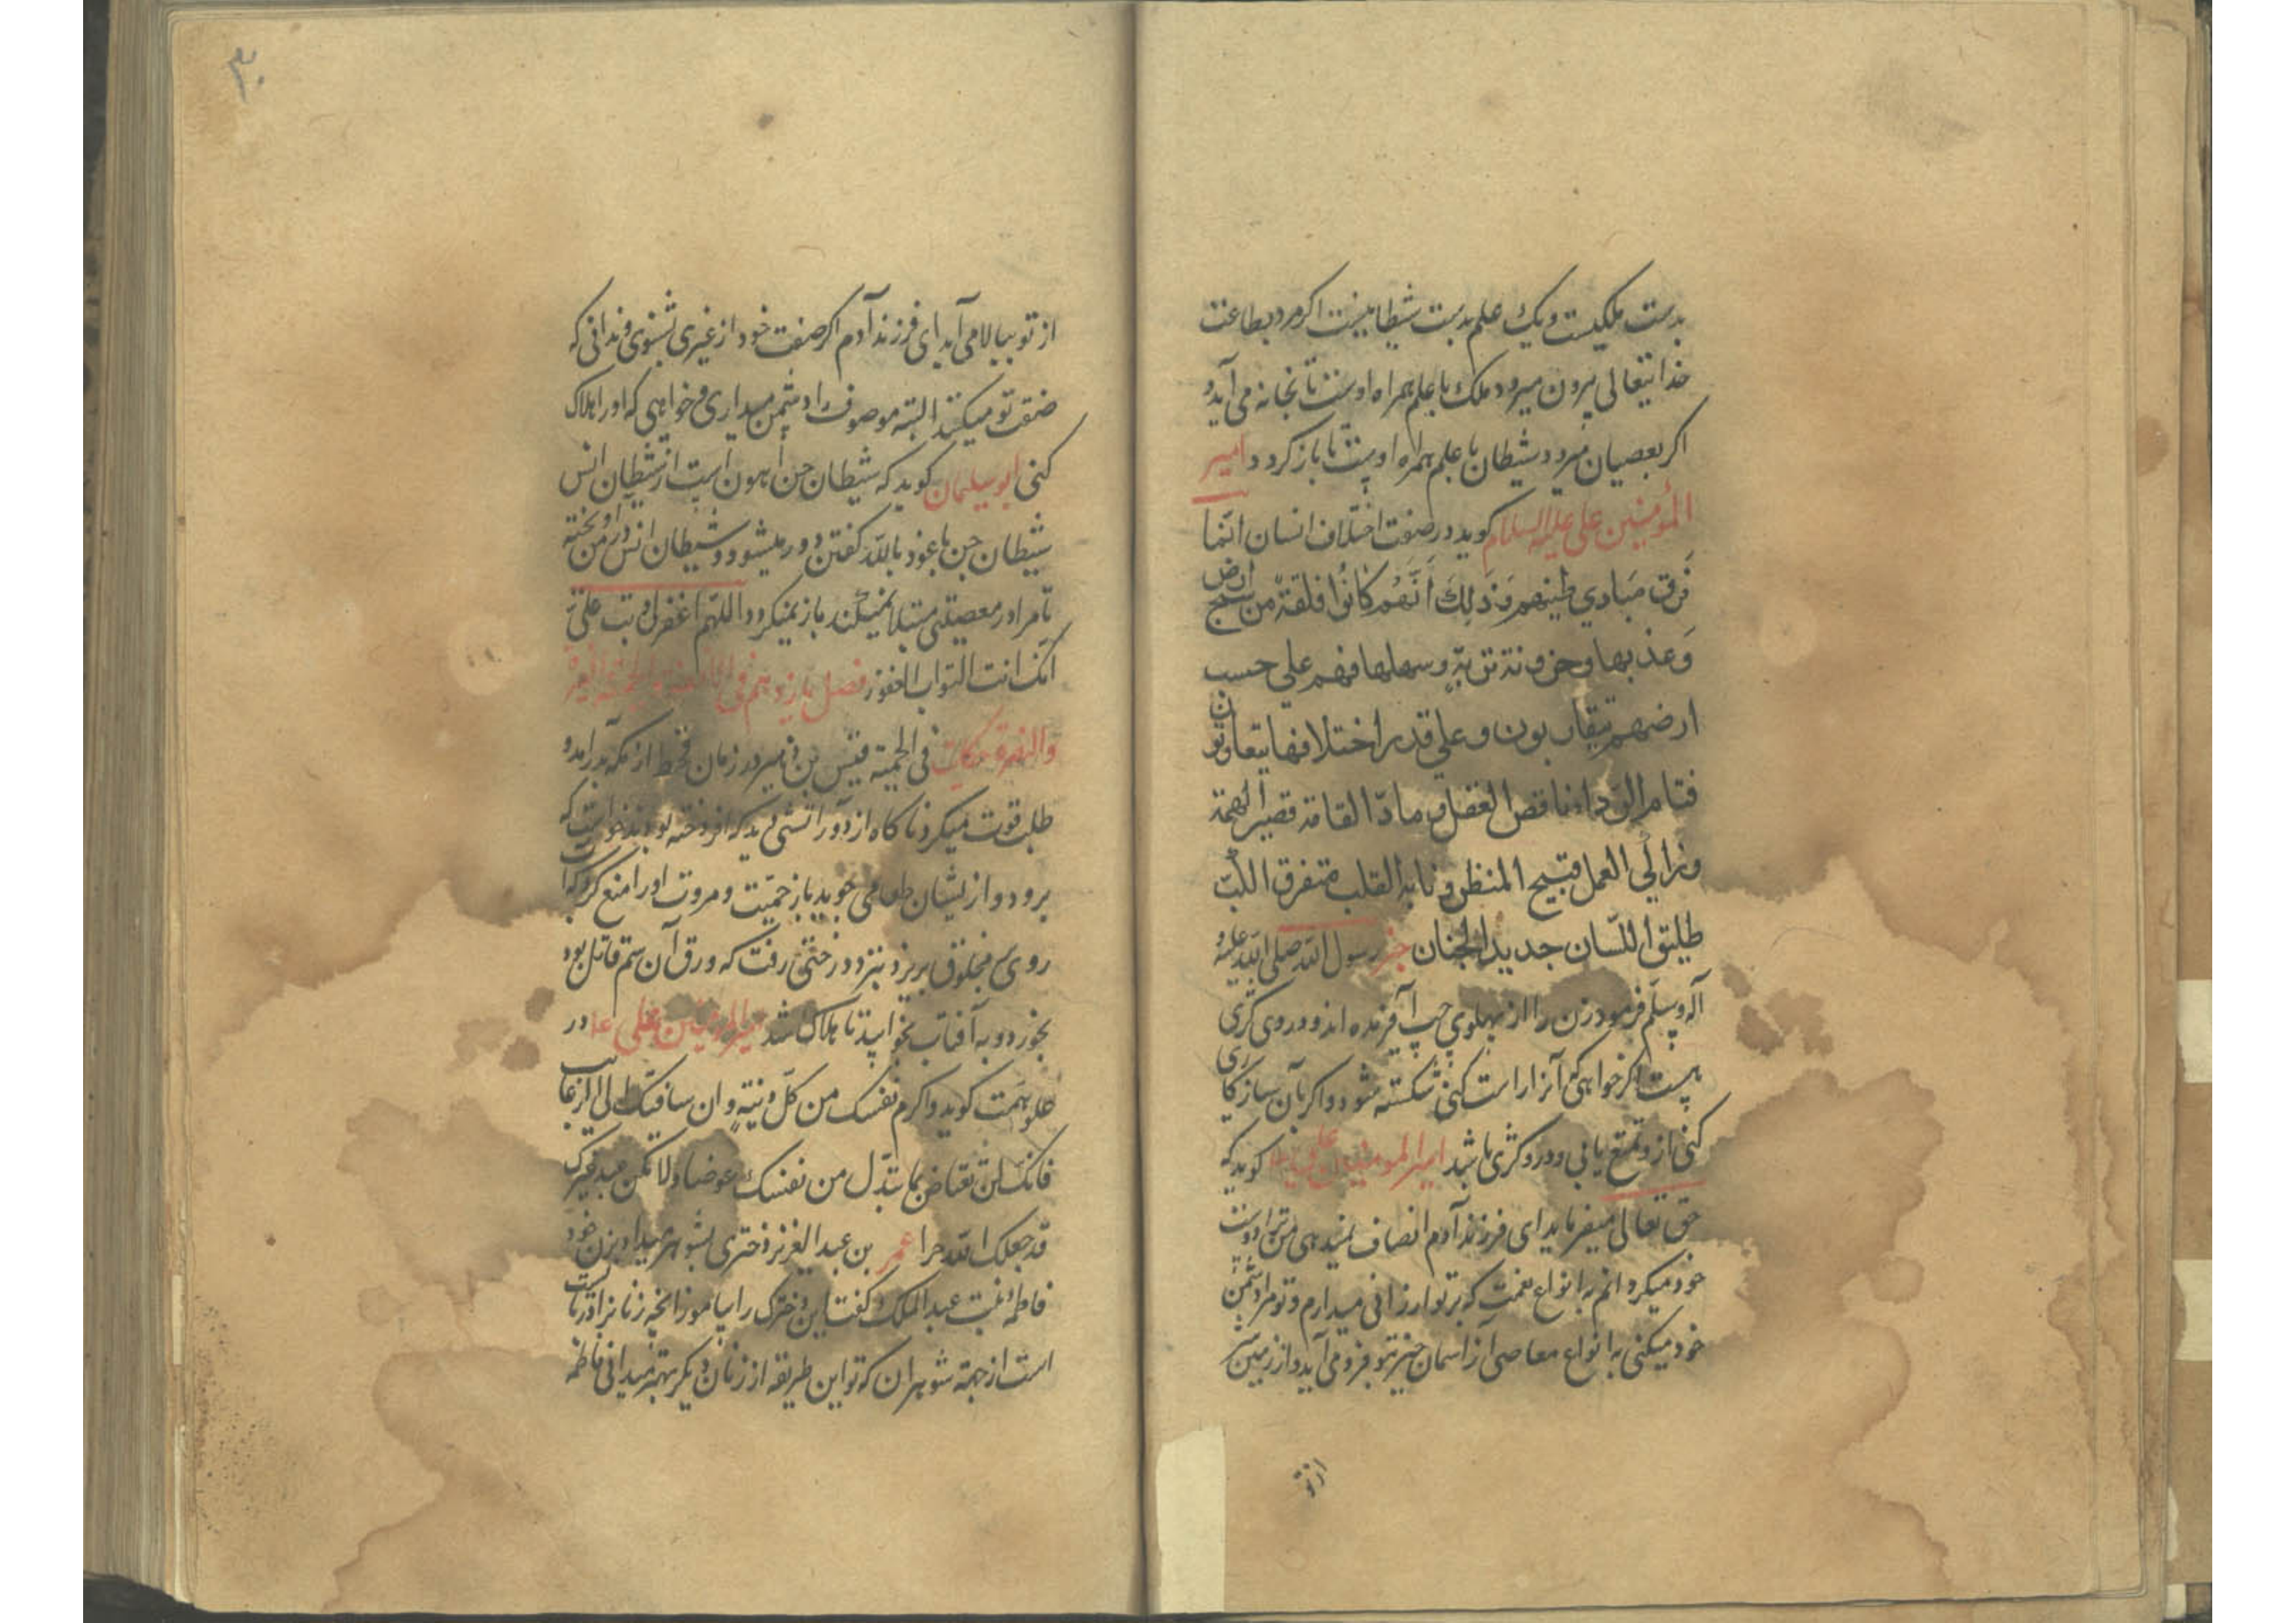 بدست ملکیست و یک علم بدست شیطانیست اکر مرد بطاعت
خدایتعالی بیرون میرود ملک با علم همراه اوست تا بخانه می آید و
اکر بعصیان میرود شیطان با علم همراه اوست تا باز کردد امیر
المؤمنین علی علیه السلام کوید در صفت اختلاف انسان انّما
فَرق مَبادي طینهم وَذلِكَ اَنَّهُم كانُوا فلقة من سبخ ارض
وَعذبها وحزونة تربةٍ وسهلها فهم علي حسب
ارضهم یتقاربون وعلي قدر اختلافها یتفاوتون
فتام الرّواء ناقص العقل و مادّ القامة قصیر الهمة
وزاكي العمل قبیح المنظر و القلب متفرق اللّب
طلیق اللّسان حدید الجنان خبر رسول الله صلی الله علیه و
آله وسلم فرمود زن را از پهلوی چپ آفریده اند و دروی کژی
هست اکر خواهی که آنرا راست کنی شکسته شود و اکر بآن سازکاری
کنی ازو تمتع یابی و درو کژی باشد امیر المؤمنین علی کوید که
حق تعالی میفرماید ای فرزند آدم انصاف نمیدهی من ترا دوست
خود میکردانم به انواع نعمت که بر تو ارزانی میدارم و تو مرا دشمن
خود میکنی به انواع معاصی از آسمان خیر بتو فرو می آید و از زمین شر
از تو
۳۰
از تو ببالا می آید ای فرزند آدم اکر صفت خود از غیری بشنوی و ندانی که
صفت تو میکنند البته موصوف را دشمن میداری و خواهی که او را هلاک
کنی ابو سلیمان کوید که شیطان جن اهون است از شیطان انس
شیطان جن با عوذ بالله کفتن دور میشود و شیطان انس در من آویخته
تا مرا در معصیتی مبتلا نمیکند باز نمیکردد اللهم اغفرلی و تب علیّ
انّک انت التواب الغفور فصل یازدهم فی والحمیّة والغیرة
حکایت فی الحمیّة قیس بن در زمان قحط از مکه بدر آمد و
طلب قوت میکرد ناکاه از دور آتشی دید که افروخته بودند خواست که
برود و از یشان طعامی جوید باز حمیّت و مروت او را منع کرد که آب
روی مخلوق بریزد بنزد درختی رفت که ورق آن سم قاتل بود
بخورد و به آفتاب بخوابید تا هلاک شد امیر المؤمنین علی در
علو همّت کوید واکرم نفسک من کلّ دنیّةٍ و ان ساقتک الی الرغائب
فانّک لن تعتاض بما تبذل من نفسک عوضا ولا تکن عبد غیرک
قد جعلک الله حرا عمر بن عبد العزیز دختری بشوهر میداد بزن خود
فاطمه بنت عبد الملک کفت این دخترک را بیاموز آنچه زنانرا
است از جهة شوهران که تو این طریقه از زنان دیکر بهتر میدانی فاطمه